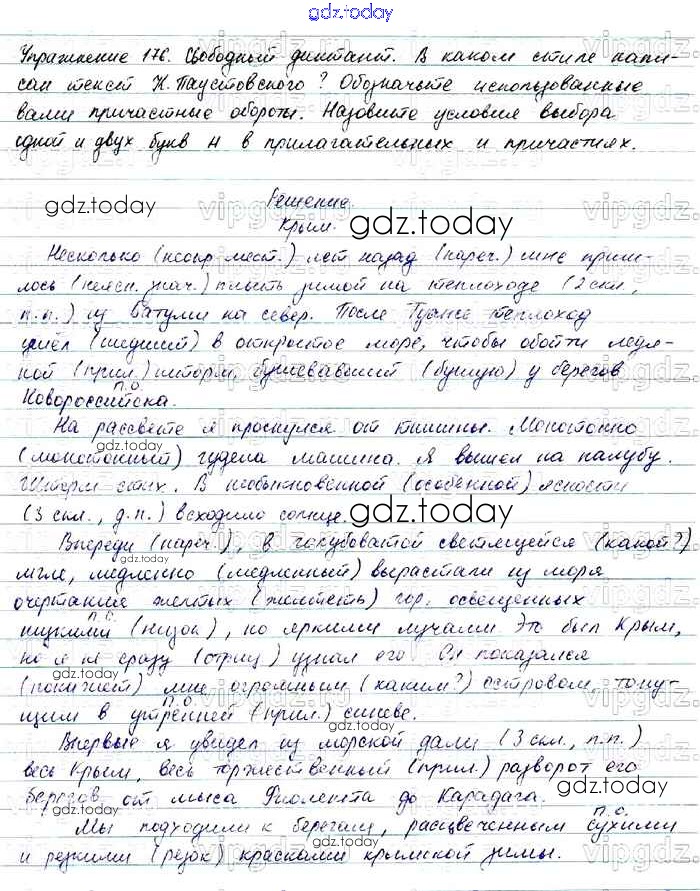 gdz.today
Упражнение 176. Свободный диктант. В каком стиле напи-
сан текст К. Паустовского? Обозначьте использованные
вами причастные обороты. Назовите условия выбора
одной и двух букв н в прилагательных и причастиях.
Решение.
gdz.today
Крым.
gdz.today
Несколько (неопр. мест.) лет назад (нареч.) мне приш-
лось (неясн. знач.) плыть зимой на теплоходе (2 скл.,
п.п.) из Батуми на север. После Туапсе теплоход
ушёл (шедший) в открытое море, чтобы обойти ледя-
ной (прил.) шторм, бушевавший (бушую) у берегов
п.о.
Новороссийска.
На рассвете я проснулся от тишины. Монотонно
gdz.today
(монотонный) гудела машина. Я вышел на палубу.
Шторм стих. В необыкновенной (особенной) ясности
(3 скл., д.п.) всходило солнце.
gdz.today
Впереди (нареч.), в голубоватой светящейся (какой?)
gdz.today
мгле, медленно (медленный) вырастали из моря
очертания желтых (желтеть) гор, освещенных
п.о.
низкими (низок), но яркими лучами Это был Крым,
но я не сразу (отриц) узнал его Он показался
(покажет) мне огромным (каким?) островом, тону-
п.о.
щим в утренней (прил.) синеве.
Впервые я увидел из морской дали (3 скл., п.п.)
весь Крым, весь торжественный (прил.) разворот его
gdz.today
берегов от мыса Фиолента до Карадага.
gdz.today
п.о.
Мы подходили к берегам, расцвеченным сухими
и резкими (резок) красками крымской зимы.
gdz.today